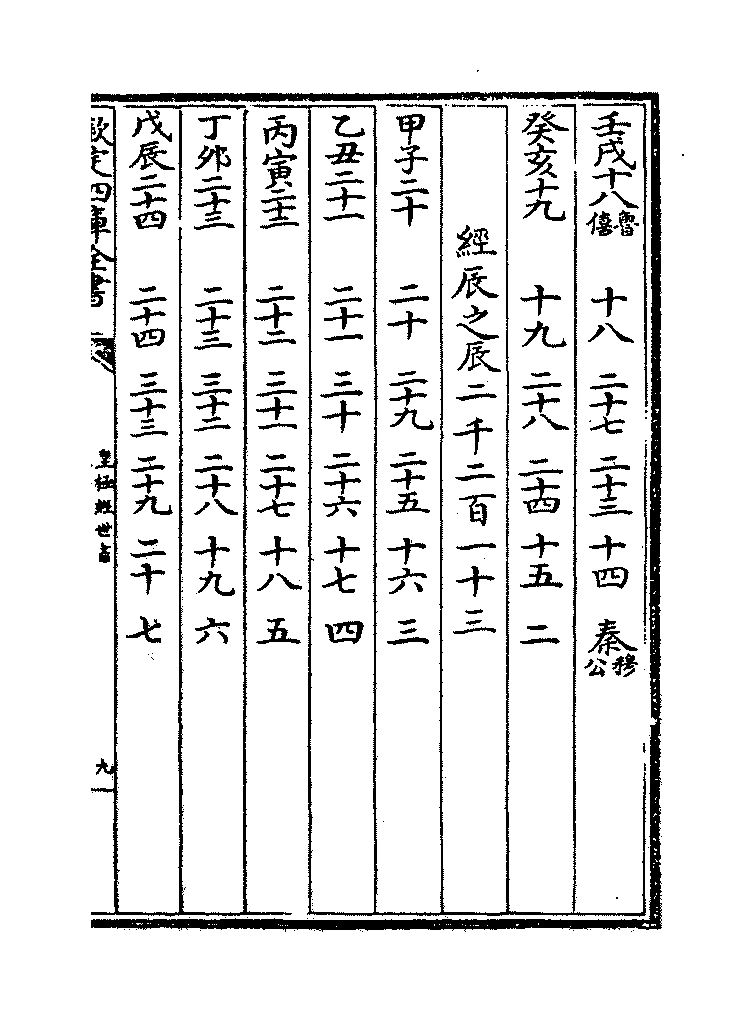 壬戌十八魯僖 十八 二十七 二十三 十四 秦穆公
癸亥十九 十九 二十八 二十四 十五 二
經辰之辰二千二百一十三
甲子二十 二十 二十九 二十五 十六 三
乙丑二十一 二十一 三十 二十六 十七 四
丙寅二十二 二十二 三十一 二十七 十八 五
丁卯二十三 二十三 三十二 二十八 十九 六
戊辰二十四 二十四 三十三 二十九 二十 七
欽定四庫全書 皇極經世書 九